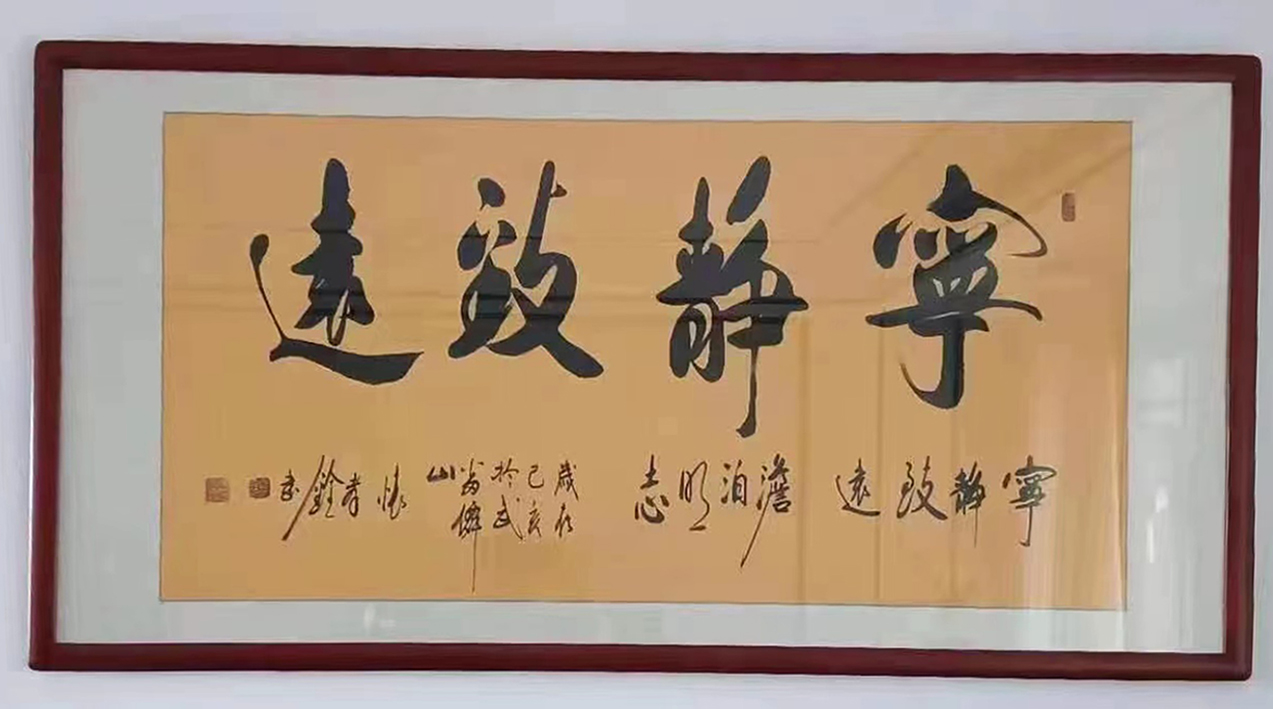 寧靜致遠
寧靜致遠
澹泊明志
歲在
己亥
於武
當
山
銓書